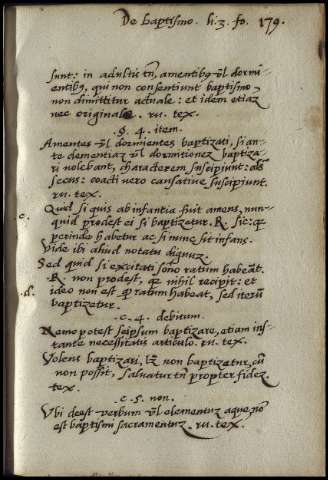 De baptismo. li. 3. fo. 179.
sunt: in adultis tñ, amentibꝯ vl dormi-
entibꝯ, qui non consentiunt baptismo,
non dimittitur actuale: et idem etiaz
nec originale. ru. tex.
.§. 4. item.
Amentes vl dormientes baptizati, si an-
te dementiaz vl dormitionez baptiza-
ri nolebant, characterem suscipiunt: als
secus: coacti vero causative suscipiunt.
ru. tex.
Quid si quis ab infantia fuit amens, nun-
c.
quid prodest ei si baptizetur. R. sic: qꝫ
perinde habetur ac si nunc sit infans.
Vide ibi aliud notatu dignuz.
Sed quid si excitati sono ratum habeāt.
.d.
R. non prodest, qꝫ nihil recipit: et
ideo non est qd ratum habeat, sed iterū
baptizetur.
.c. 4. debitum.
Nemo potest seipsum baptizare, etiam ins-
tante necessitatis articulo. ru. tex.
Volens baptizari, lꝫ non baptizetur, cū
non possit, salvatur tñ propter fidez.
tex.
.c. 5. non.
Vbi deest verbum vl elementuz aque, nō
est baptismi sacramentuz. ru. tex.